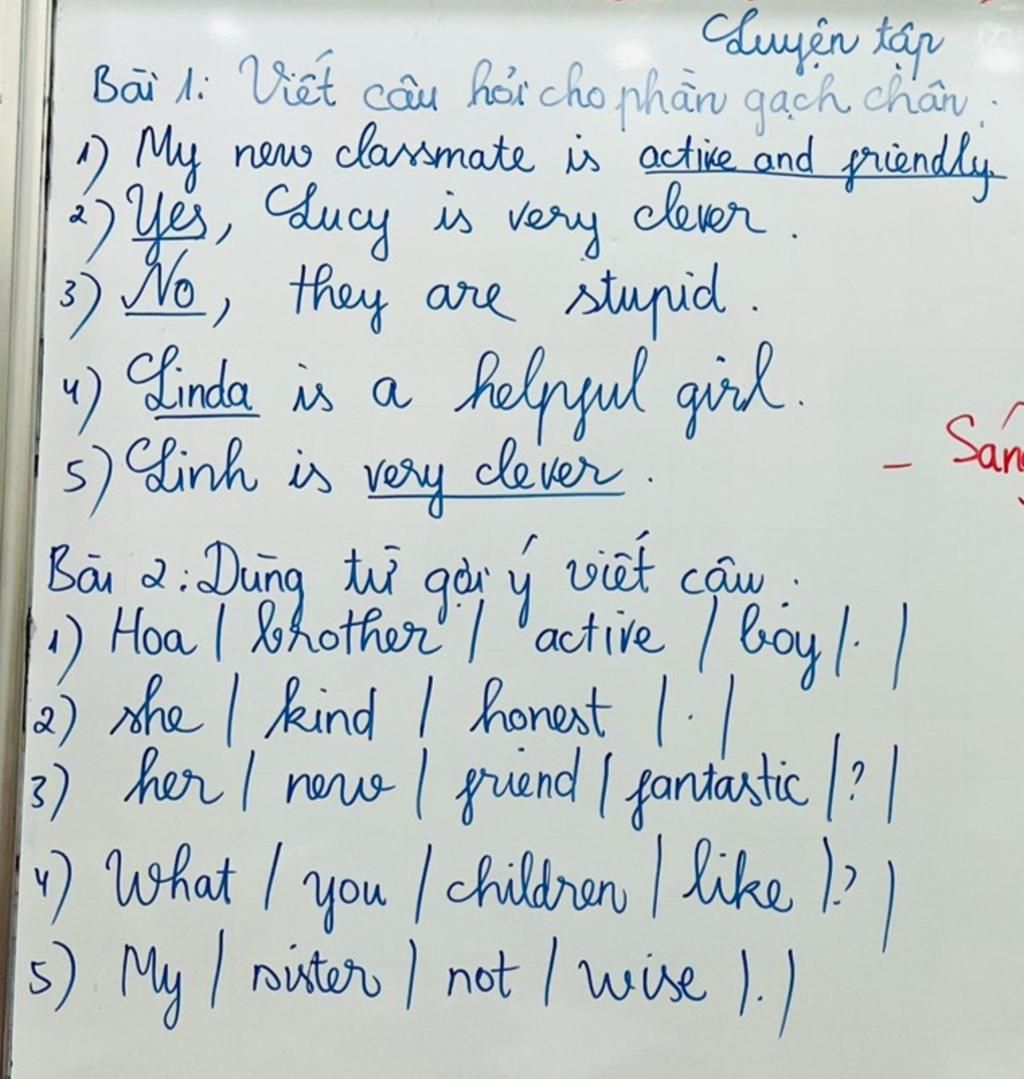 Luyện tập
Bài 1: Viết câu hỏi cho phần gạch chân:
1) My new classmate is active and friendly.
2) Yes, Lucy is very clever.
3) No, they are stupid.
4) Linda is a helpful girl.
- Sán
5) Linh is very clever.
Bài 2: Dùng từ gợi ý viết câu.
1) Hoa | brother | active | boy |. |
2) she | kind | honest | . |
3) her | new | friend | fantastic | ? |
4) What | you | children | like |? |
5) My | sister | not | wise |. |